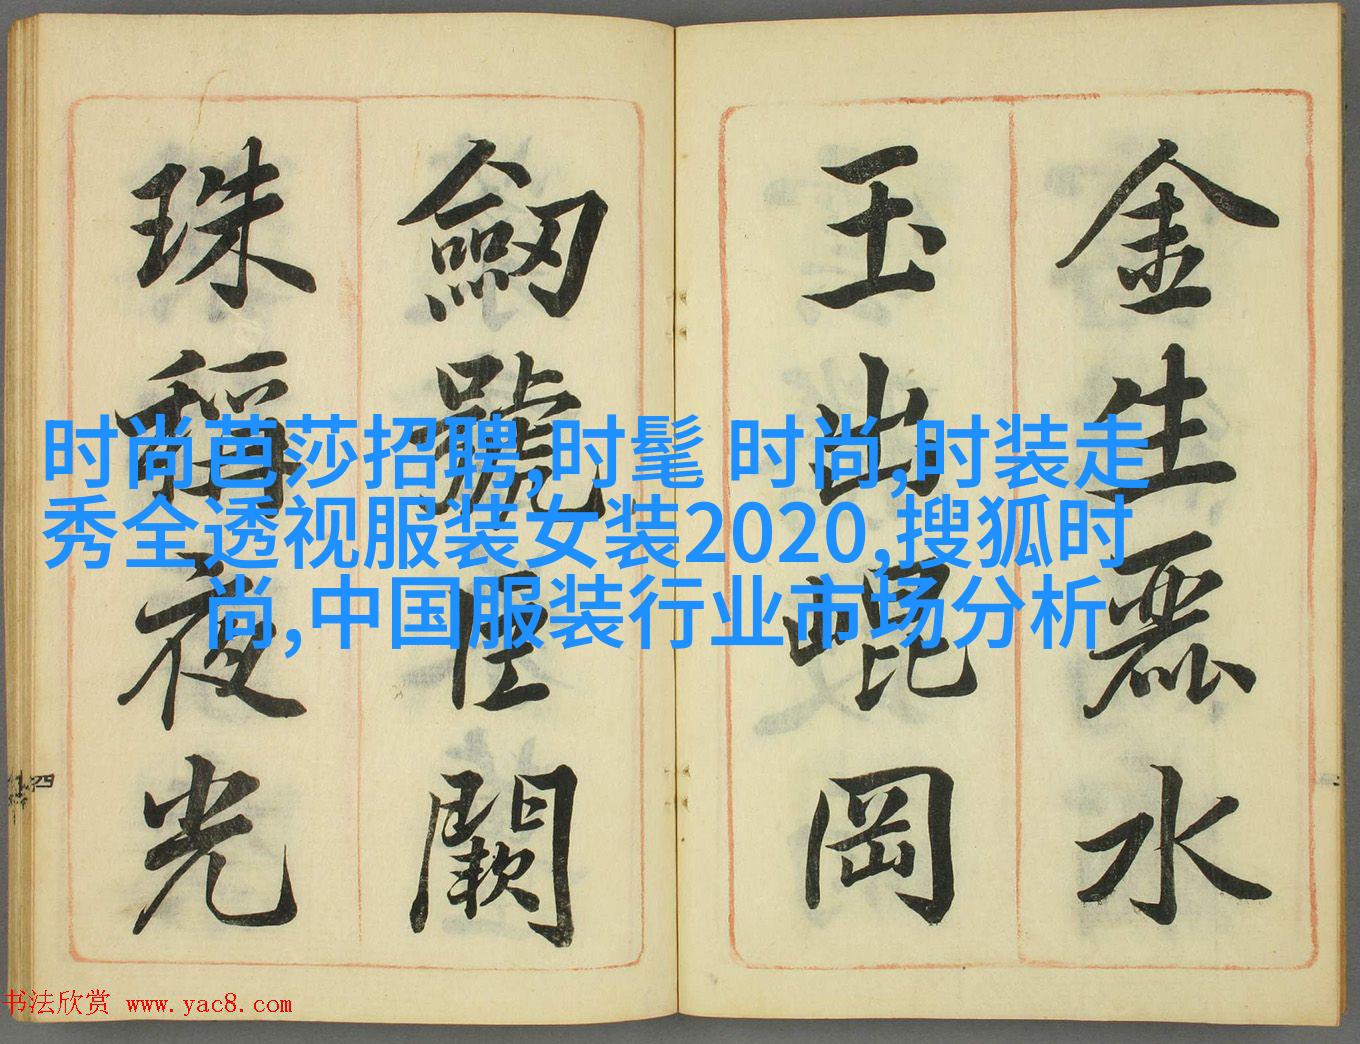 金生麗水
玉出崐岡
劒號巨闕
珠稱夜光
时尚芭莎招聘,时髦 时尚,时装走
秀全透视服装女装2020,搜狐时
尚,中国服装行业市场分析
书法欣赏 www.yac8.com